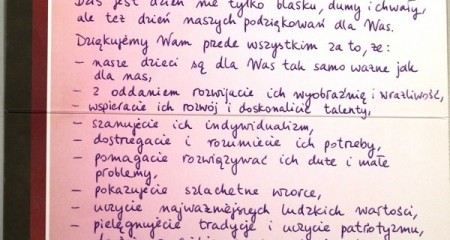 Dziś jest dzień nie tylko blasku, dumy i chwały,
ale też dzień naszych podziękowań dla Was.
Dziękujemy Wam przede wszystkim za to, że:
- nasze dzieci są dla Was tak samo ważne jak
dla nas,
- z oddaniem rozwijacie ich wyobraźnię i wrażliwość,
- wspieracie ich rozwój i doskonalicie talenty,
- szanujecie ich indywidualizm,
- dostrzegacie i rozumiecie ich potrzeby,
- pomagacie rozwiązywać ich duże i małe
problemy,
- pokazujecie szlachetne wzorce,
- uczycie najważniejszych ludzkich wartości,
- pielęgnujecie tradycje i uczycie patriotyzmu,